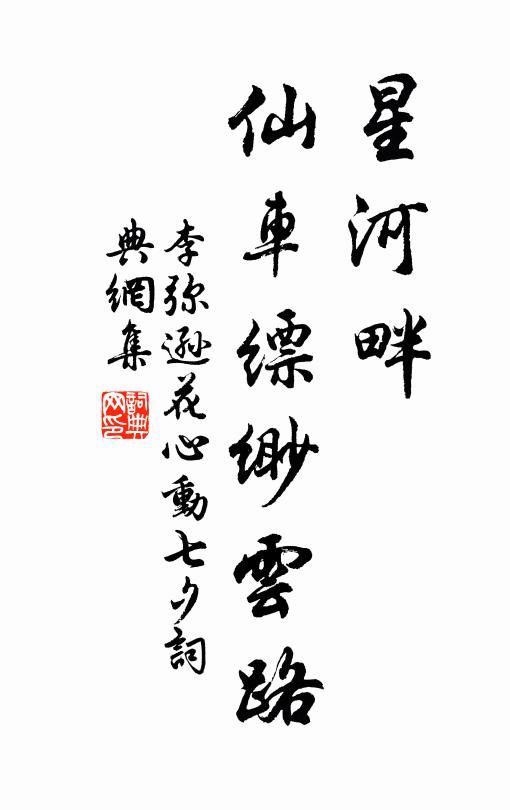 星河畔
仙車縹緲雲路
李弥遜花心動七夕詞
典網集
詞典网印